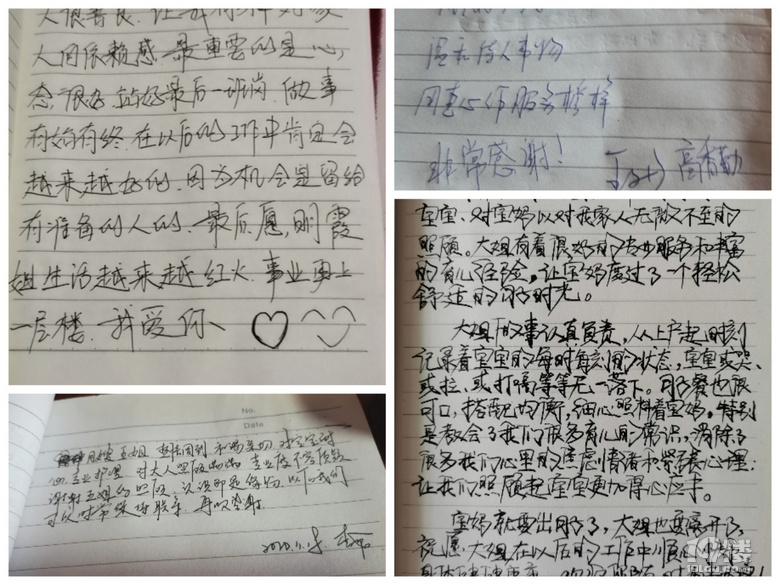 人很善良.让我有种对家
人间依赖感.最重要的是心
态很好.站好最后一班岗.做事
有始有终.在以后的工作中肯定会
越来越好的.因为机会是留给
有准备的人的.最后愿,刚霞
姐生活越来越红火.事业更上
一层楼.我爱你、
温和待人事物
用真心作服务榜样
非常感谢! 高香勤
宝宝、对宝妈以对我家人无微不至的
照顾。大姐有着很好的专业服务和丰富
的育儿经验。让宝妈度过了一个轻松
舒适的月子时光。
大姐做事认真负责,从上户起时刻
记录着宝宝的每时每刻间的状态,宝宝或哭、
或拉、或打嗝等等无一落下。月子餐也很
可口,搭配均衡,细心照料着宝妈。特别
是教会了我们很多育儿的常识,消除了
很多我们心里的焦虑情绪和紧张心理.
让我们照顾起宝宝更加得心应手。
宝妈就要出月子了,大姐也要离开了
祝愿大姐在以后的工作中顺
No.
Date
月嫂王姐
心专业护理 对大人照顾
谢谢王姐的照顾
再次感谢
19楼
19lou.com